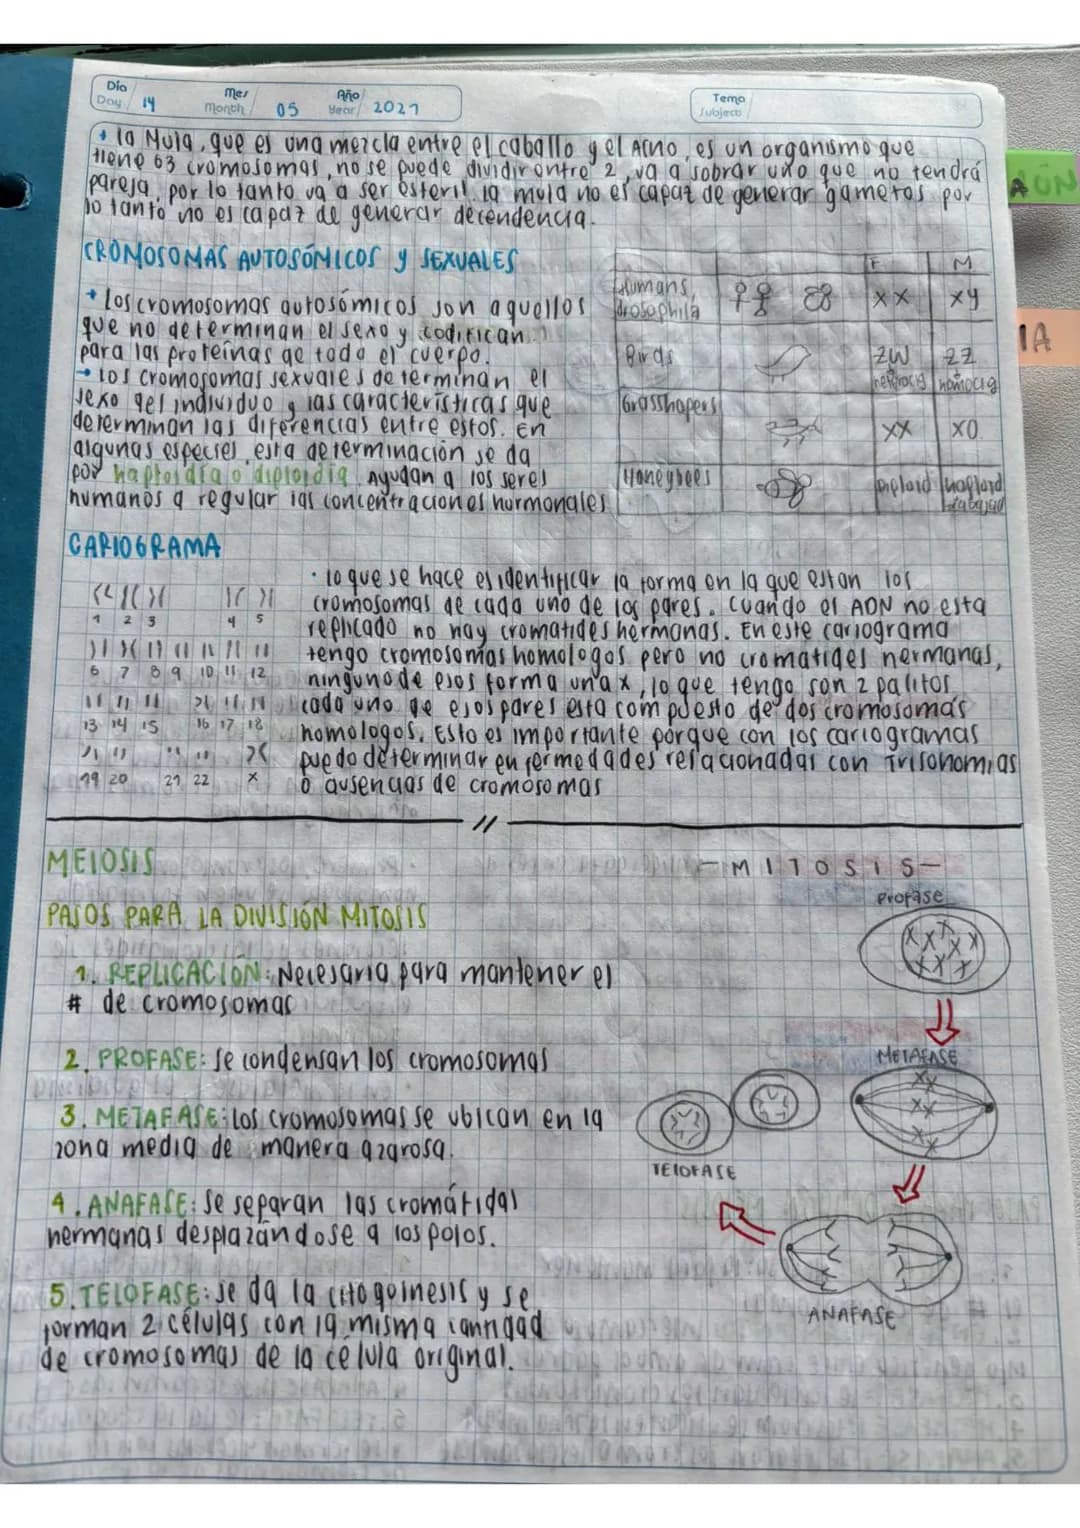 Día Mes Año Tema
Day 14 Month 05 Year 2021 Subject
+ la Mula, que es una mezcla entre el caballo y el Asno, es un organismo que
tiene 63 cromosomas, no se puede dividir entre 2, va a sobrar uno que no tendrá
pareja, por lo tanto va a ser esteril. la mula no es capaz de generar gametos por
lo tanto no es capaz de generar decendencia.
CROMOSOMAS AUTOSÓMICOS y SEXUALES
+ Los cromosomas autosómicos son aquellos
que no determinan el sexo y codifican
para las proteínas de todo el cuerpo.
→ Los cromosomas sexuales determinan el
sexo del individuo y las características que
determinan las diferencias entre estos. En
algunas especies esta determinación se da
por haploidía o diploidía. Ayudan a los seres
humanos a regular las concentraciones hormonales
F M
Humans, drosophila XX XY
Birds ZW ZZ
Grasshopers XX XO.
Honeybees Diploid Haploid
CARIOGRAMA
· lo que se hace es identificar la forma en la que estan los
cromosomas de cada uno de los pares. Cuando el ADN no esta
replicado no hay cromatides hermanas. En este cariograma
tengo cromosomas homologos pero no cromatides hermanas,
ninguno de esos forma una x, lo que tengo son 2 palitos
cada uno de esos pares esta compuesto de dos cromosomas
homologos. Esto es importante porque con los cariogramas
puedo determinar enfermedades relacionadas con Trisonomias
o ausencias de cromosomas
1 2 3 4 5
6 7 8 9 10 11 12
13 14 15 16 17 18
19 20 21 22 X
MEIOSIS
PASOS PARA LA DIVISIÓN MITOSIS
1. REPLICACIÓN: Necesaria para mantener el
# de cromosomas
2. PROFASE: Se condensan los cromosomas
3. METAFASE: los cromosomas se ubican en la
zona media de manera azarosa.
4. ANAFASE: Se separan las cromátidas
hermanas desplazándose a los polos.
5. TELOFASE: Se da la citogoinesis y se
forman 2 células con la misma cantidad
de cromosomas de la célula original.
— M I T O S I S —
Profase
METAFASE
TELOFASE
ANAFASE